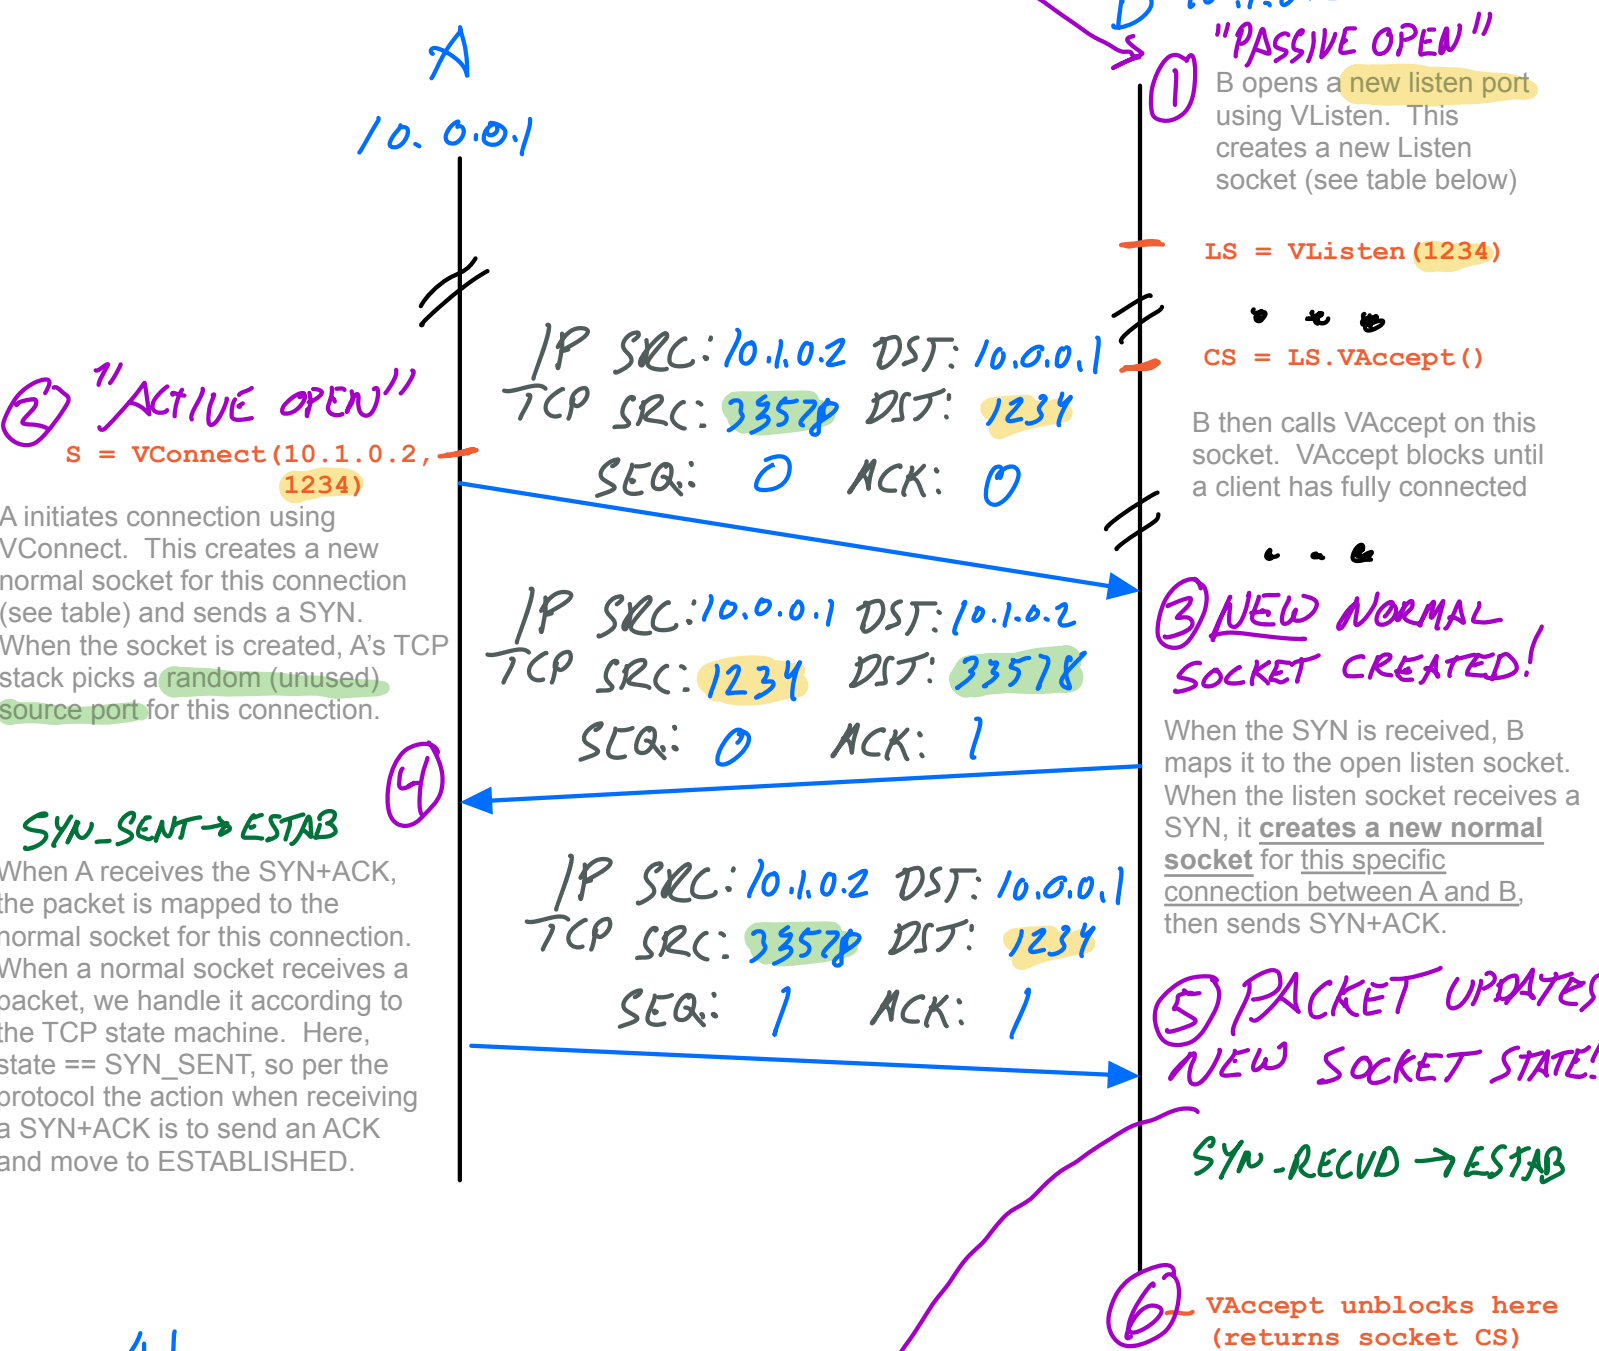 A
10.0.0.1
"PASSIVE OPEN"
1
B opens a new listen port
using VListen. This
creates a new Listen
socket (see table below)
LS = VListen(1234)
CS = LS.VAccept()
B then calls VAccept on this
socket. VAccept blocks until
a client has fully connected
2 "ACTIVE OPEN"
S = VConnect(10.1.0.2,
1234)
A initiates connection using
VConnect. This creates a new
normal socket for this connection
(see table) and sends a SYN.
When the socket is created, A's TCP
stack picks a random (unused)
source port for this connection.
IP SRC: 10.1.0.2 DST: 10.0.0.1
TCP SRC: 33578 DST: 1234
SEQ: 0 ACK: 0
IP SRC: 10.0.0.1 DST: 10.1.0.2
TCP SRC: 1234 DST: 33578
SEQ: 0 ACK: 1
3 NEW NORMAL
SOCKET CREATED!
When the SYN is received, B
maps it to the open listen socket.
When the listen socket receives a
SYN, it creates a new normal
socket for this specific
connection between A and B,
then sends SYN+ACK.
4
SYN_SENT→ESTAB
When A receives the SYN+ACK,
the packet is mapped to the
normal socket for this connection.
When a normal socket receives a
packet, we handle it according to
the TCP state machine. Here,
state == SYN_SENT, so per the
protocol the action when receiving
a SYN+ACK is to send an ACK
and move to ESTABLISHED.
IP SRC: 10.1.0.2 DST: 10.0.0.1
TCP SRC: 33578 DST: 1234
SEQ: 1 ACK: 1
5 PACKET UPDATES
NEW SOCKET STATE!
SYN-RECVD → ESTAB
6
VAccept unblocks here
(returns socket CS)